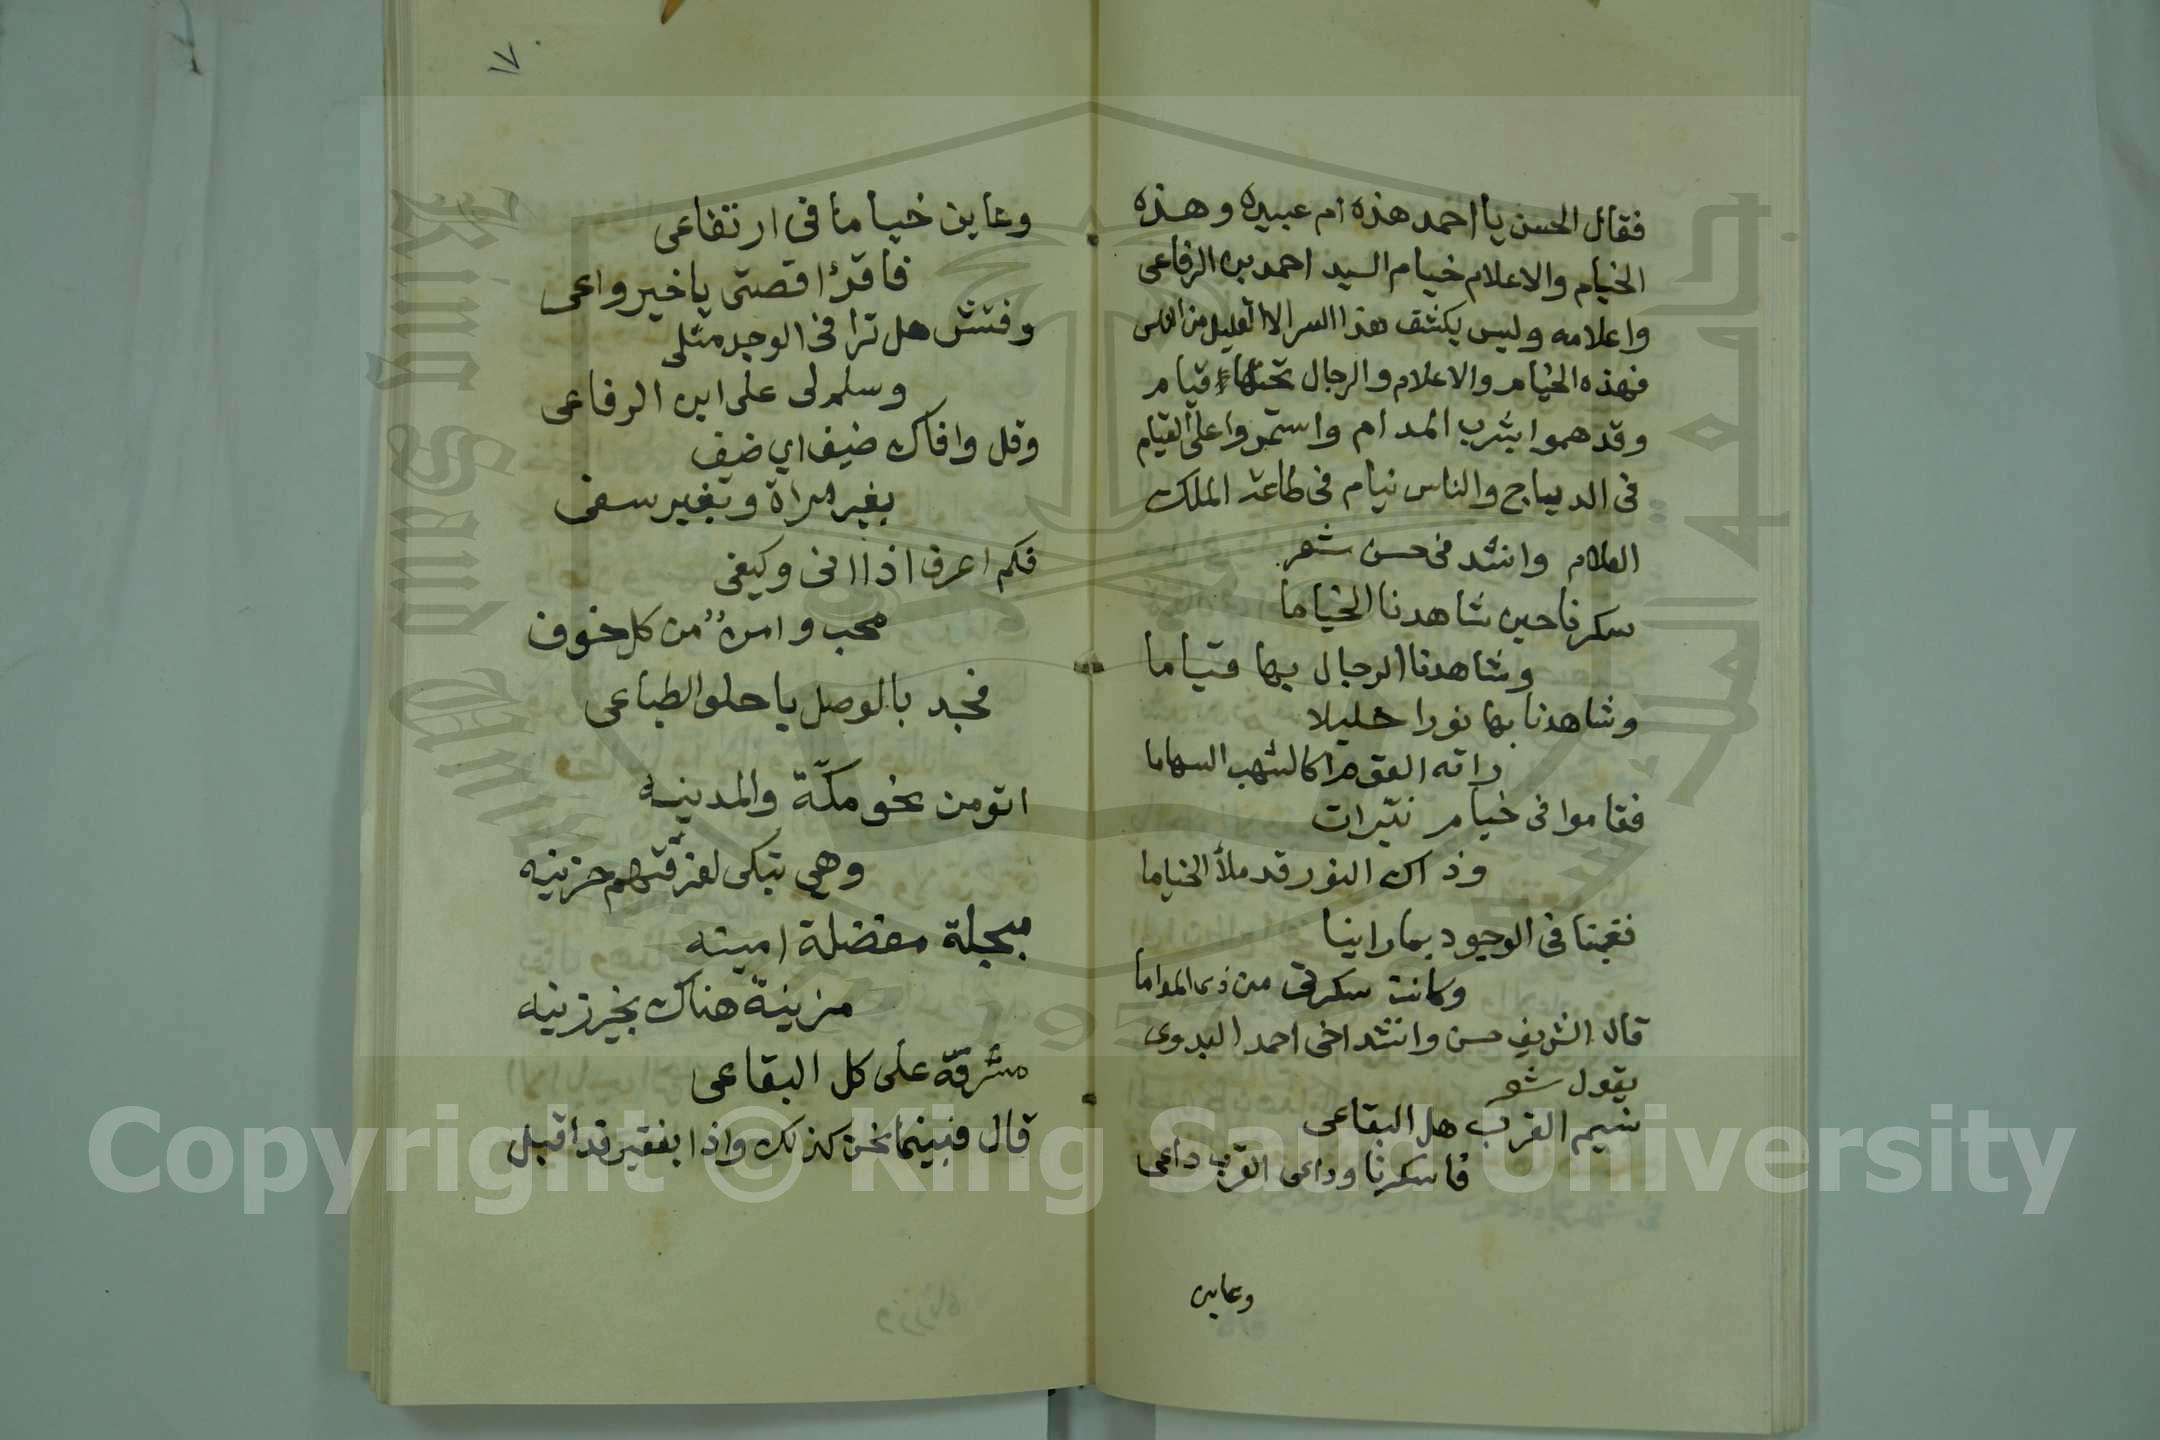 فقال الحسن يا احمد هذه ام عبيده وهذه
الخيام والاعلام خيام السيد احمد بن الرفاعى
واعلامه وليس يكشف هذا السر الا القليل من الناس
فهذه الخيام والاعلام والرجال تحتها قيام
وقد هموا بشرب المدام واستمروا على القيام
فى الديباج والناس نيام فى طاعة الملك
العلام وانشد فى حسن شعر
سكرنا حين شاهدنا الخياما
وشاهدنا الرجال بها قياما
وشاهدنا بها نورا جليلا
كالشهب السهاما
فقاموا فى خيام نيرات
وذاك النور قد ملأ الخياما
فغبنا فى الوجود بما راينا
وكانت سكرتى من ذى
قال الشريف حسن وانشد اخى احمد البدوى
يقول شعر
نسيم القرب هل البقاعى
فاسكرنا وداعى القرب داعى
وعاين
١٧
وعاين خياما فى ارتفاعى
فاقرا قصتى يا خير واعى
وفتش هل ترا فى الوجد مثلى
وسلم لى على ابن الرفاعى
وقل وافاك ضيف اي ضيف
بغير مراة وبغير سفى
فكم اعرف اذا افى وكيفى
محب وامن من كل خوف
فجد بالوصل يا حلو الطباعى
اتو من نحو مكّة والمدينه
وهى تبكى لفرقتهم حزينه
مبجلة مفضلة امينه
مزينة هناك بخير زينه
مشرفّة على كل البقاعى
قال فبينما نحن كذلك واذا بفقير قد اقبل
King Saud University
جامعة الملك سعود
1957
Copyright © King Saud University